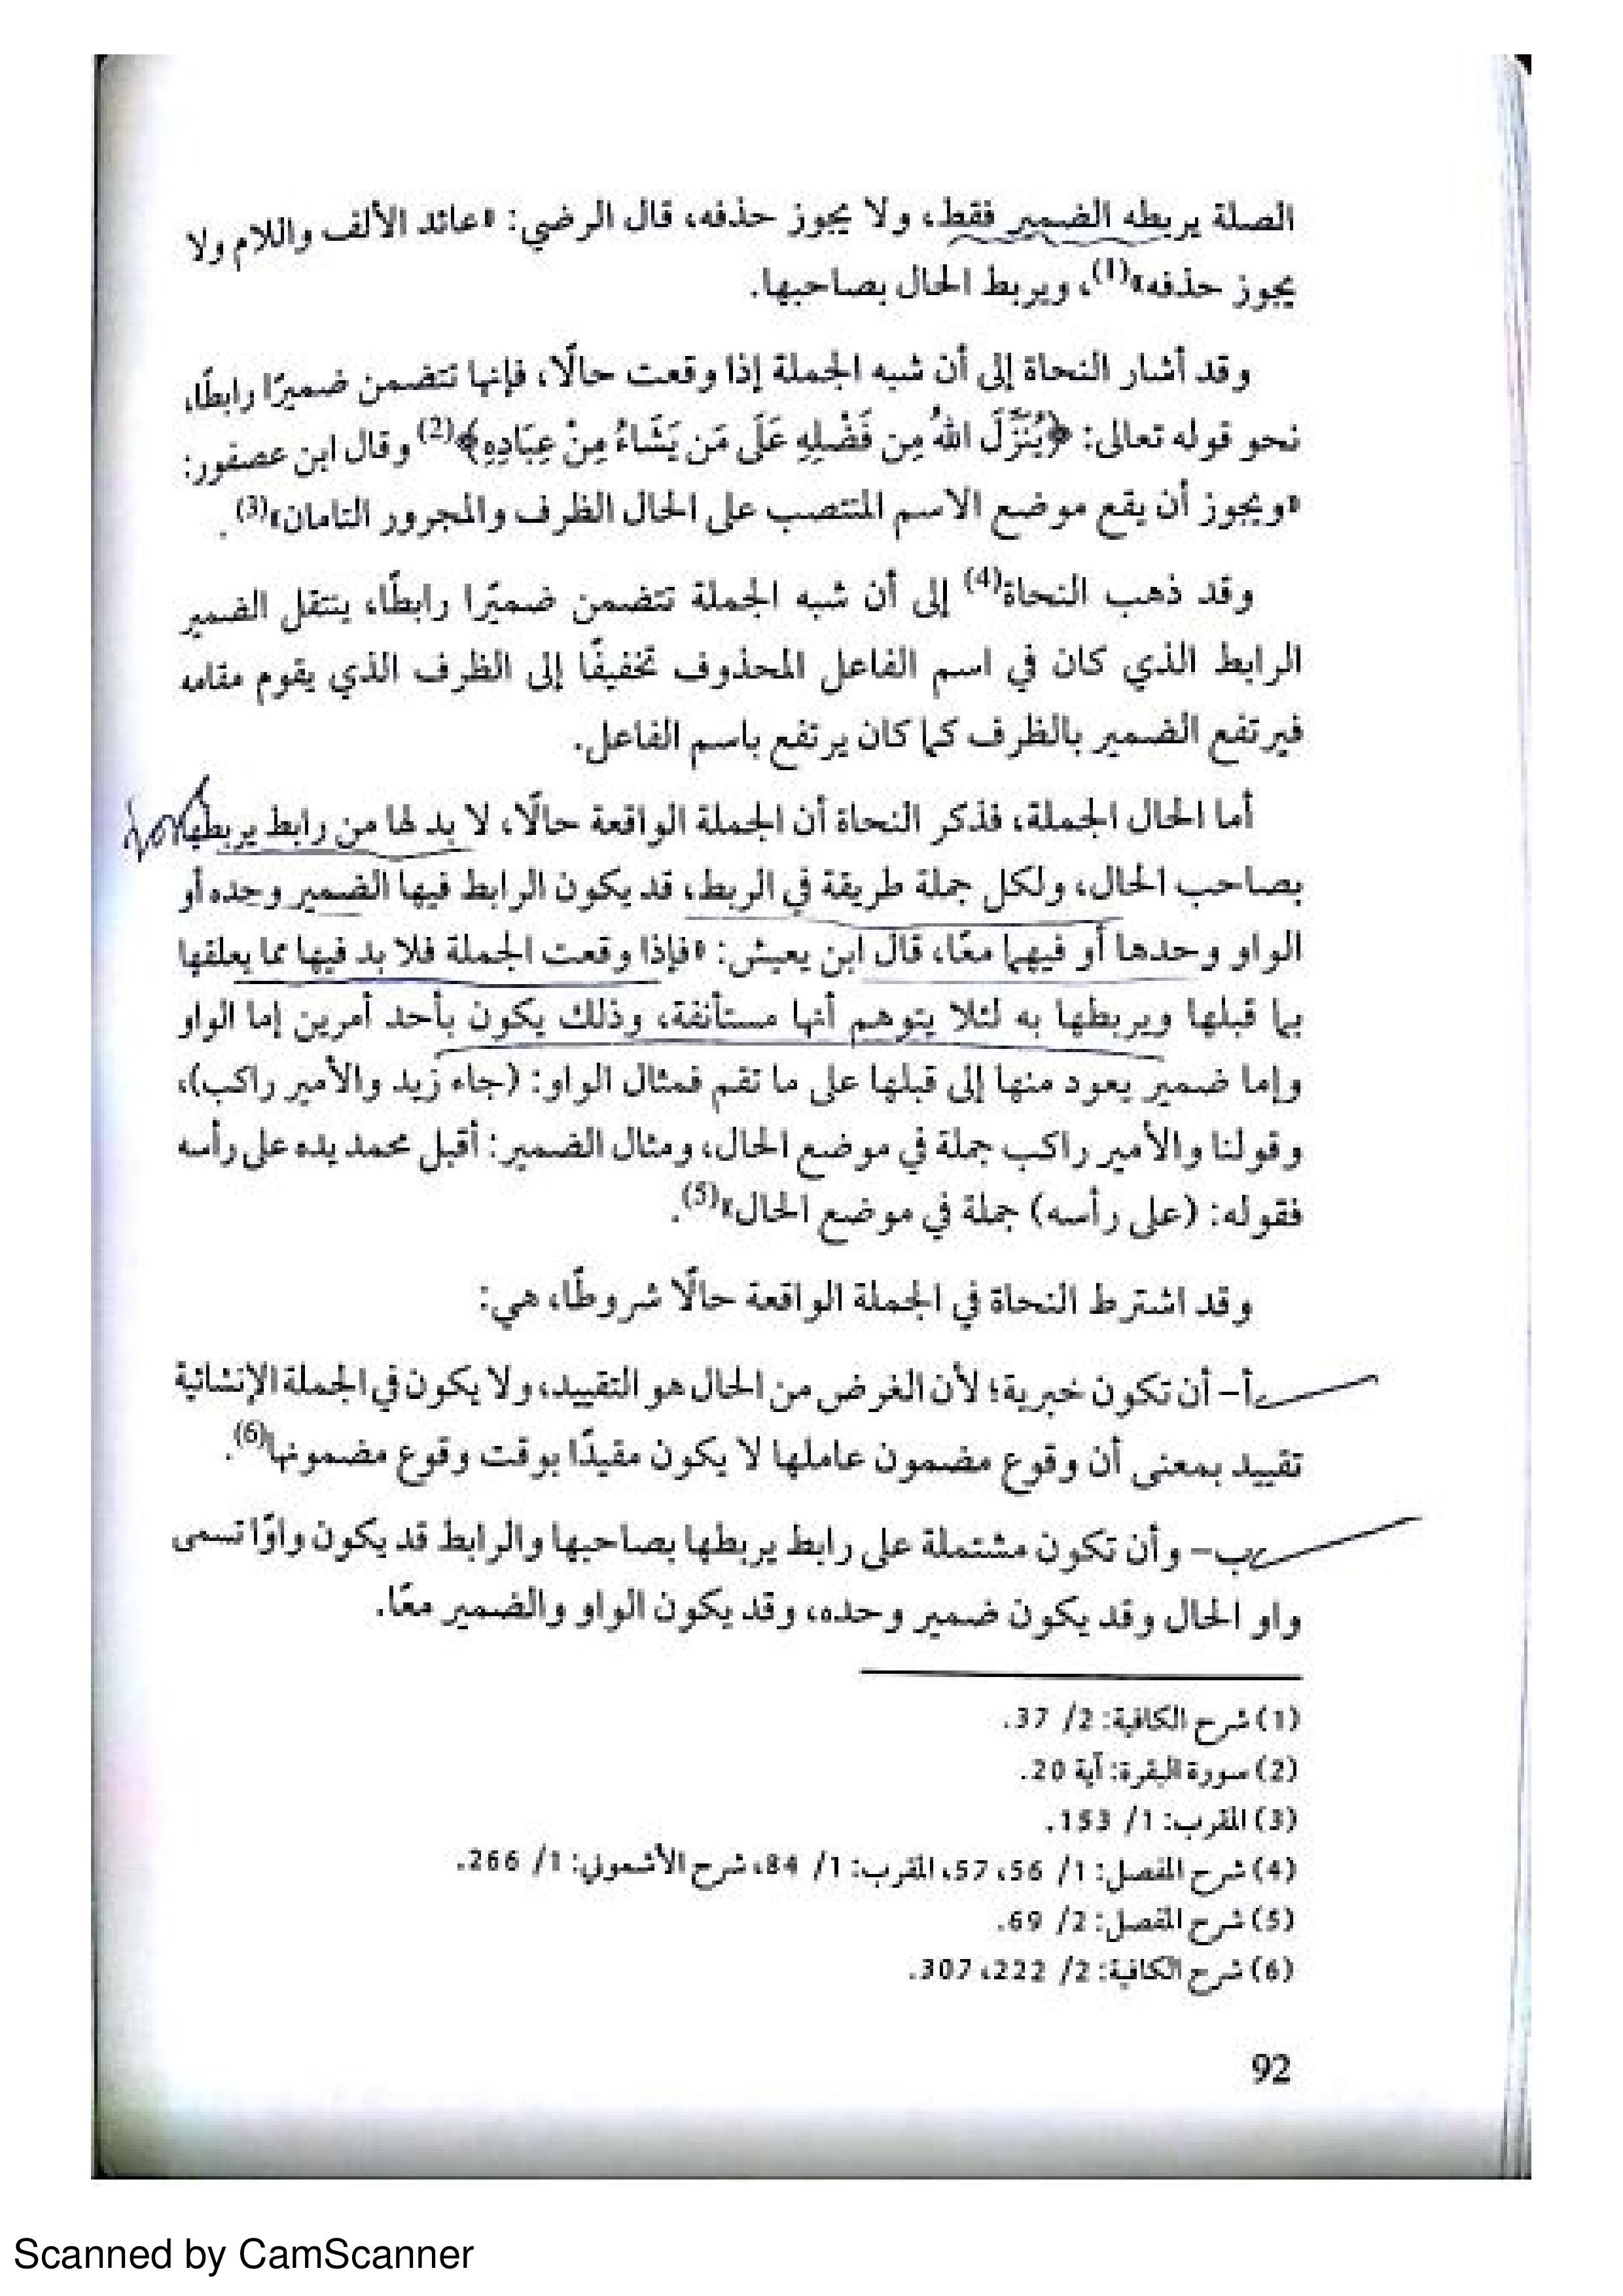 الصلة يربطه الضمير فقط، ولا يجوز حذفه، قال الرضي: «عائد الألف واللام ولا
يجوز حذفه»(1)، ويربط الحال بصاحبها.
وقد أشار النحاة إلى أن شبه الجملة إذا وقعت حالًا، فإنها تتضمن ضميرًا رابطًا،
نحو قوله تعالى: ﴿يُنَزِّلَ اللهُ مِن فَضْلِهِ عَلَى مَن يَشَاءُ مِنْ عِبَادِهِ﴾(2) وقال ابن عصفور:
«ويجوز أن يقع موضع الاسم المنتصب على الحال الظرف والمجرور التامان»(3).
وقد ذهب النحاة(4) إلى أن شبه الجملة تتضمن ضميرًا رابطًا، ينتقل الضمير
الرابط الذي كان في اسم الفاعل المحذوف تخفيفًا إلى الظرف الذي يقوم مقامه
فيرتفع الضمير بالظرف كما كان يرتفع باسم الفاعل.
أما الحال الجملة، فذكر النحاة أن الجملة الواقعة حالًا، لا بد لها من رابط يربطها
بصاحب الحال، ولكل جملة طريقة في الربط، قد يكون الرابط فيها الضمير وحده أو
الواو وحدها أو فيهما معًا، قال ابن يعيش: «فإذا وقعت الجملة فلا بد فيها مما يعلقها
بما قبلها ويربطها به لئلا يتوهم أنها مستأنفة، وذلك يكون بأحد أمرين إما الواو
وإما ضمير يعود منها إلى قبلها على ما تقم فمثال الواو: (جاء زيد والأمير راكب)،
وقولنا والأمير راكب جملة في موضع الحال، ومثال الضمير: أقبل محمد يده على رأسه
فقوله: (على رأسه) جملة في موضع الحال»(5).
وقد اشترط النحاة في الجملة الواقعة حالًا شروطًا، هي:
أ- أن تكون خبرية؛ لأن الغرض من الحال هو التقييد، ولا يكون في الجملة الإنشائية
تقييد بمعنى أن وقوع مضمون عاملها لا يكون مقيدًا بوقت وقوع مضمونها(6).
ب- وأن تكون مشتملة على رابط يربطها بصاحبها والرابط قد يكون واوًا تسمى
واو الحال وقد يكون ضمير وحده، وقد يكون الواو والضمير معًا.
(1) شرح الكافية: 2/ 37.
(2) سورة البقرة: آية 20.
(3) المقرب: 1/ 153.
(4) شرح المفصل: 1/ 56، 57، المقرب: 1/ 84، شرح الأشموني: 1/ 266.
(5) شرح المفصل: 2/ 69.
(6) شرح الكافية: 2/ 222، 307.
92
Scanned by CamScanner